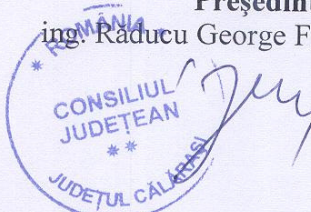 Președint
ing. Răducu George F
* ROMÂNIA *
CONSILIUL
JUDEȚEAN
**
JUDEȚUL CĂLĂRAȘI